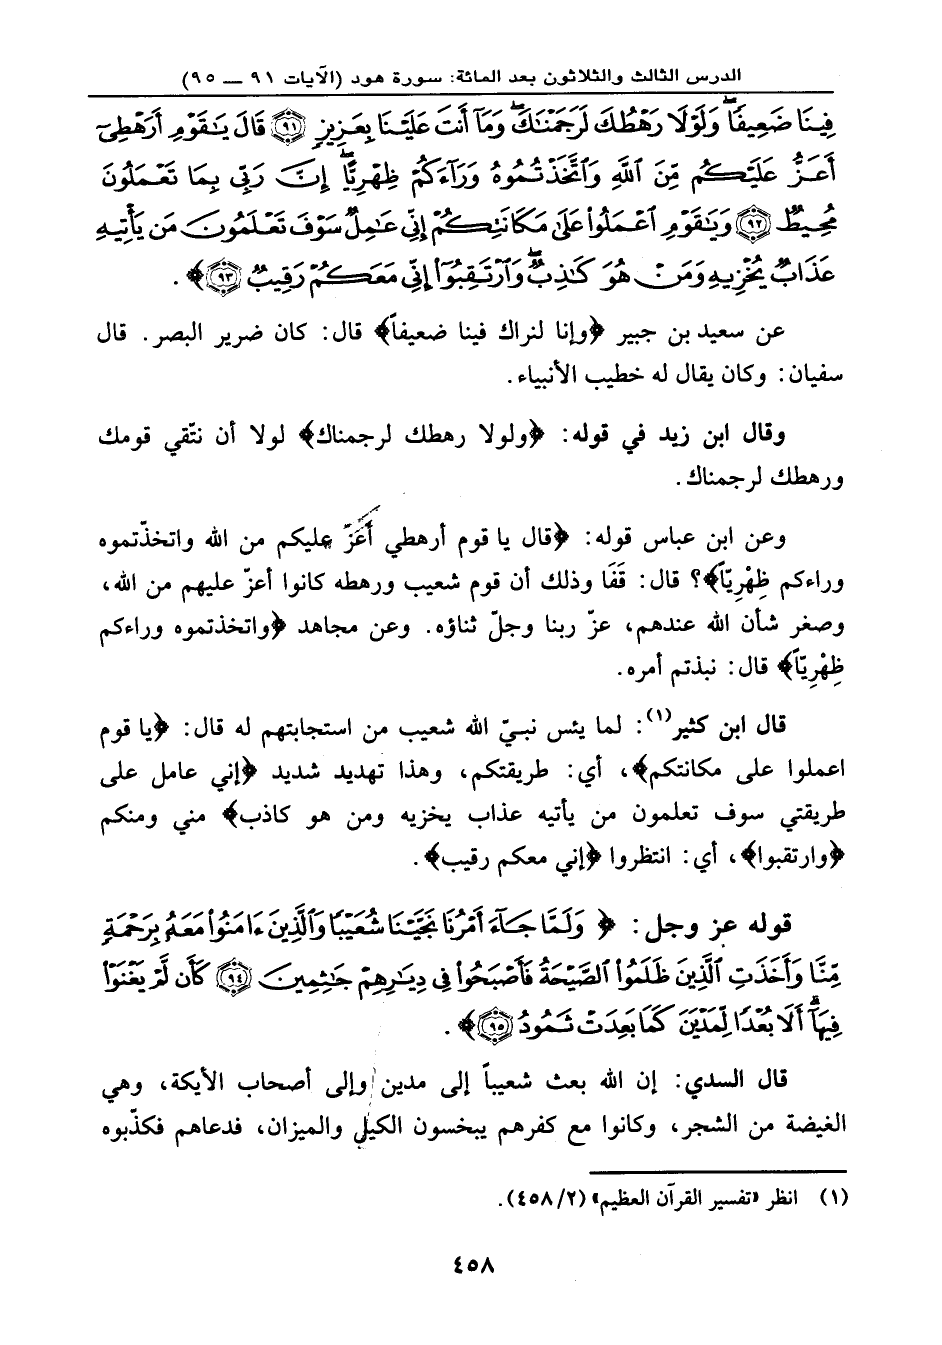 الدرس الثالث والثلاثون بعد المائة: سورة هود (الآيات ٩١ ــ ٩٥)
فِينَا ضَعِيفًا وَلَوْلَا رَهْطُكَ لَرَجَمْنَاكَ وَمَا أَنتَ عَلَيْنَا بِعَزِيزٍ ۝٩١ قَالَ يَاقَوْمِ أَرَهْطِي
أَعَزُّ عَلَيْكُم مِّنَ اللَّهِ وَاتَّخَذْتُمُوهُ وَرَاءَكُمْ ظِهْرِيًّا إِنَّ رَبِّي بِمَا تَعْمَلُونَ
مُحِيطٌ ۝٩٢ وَيَاقَوْمِ اعْمَلُوا عَلَى مَكَانَتِكُمْ إِنِّي عَامِلٌ سَوْفَ تَعْلَمُونَ مَن يَأْتِيهِ
عَذَابٌ يُخْزِيهِ وَمَنْ هُوَ كَاذِبٌ وَارْتَقِبُوا إِنِّي مَعَكُمْ رَقِيبٌ ۝٩٣﴾.
عن سعيد بن جبير ﴿وإنا لنراك فينا ضعيفاً﴾ قال: كان ضرير البصر. قال
سفيان: وكان يقال له خطيب الأنبياء.
وقال ابن زيد في قوله: ﴿ولولا رهطك لرجمناك﴾ لولا أن نتّقي قومك
ورهطك لرجمناك.
وعن ابن عباس قوله: ﴿قال يا قوم أرهطي أَعَزّ عليكم من الله واتخذتموه
وراءكم ظِهْرِيّاً﴾؟ قال: قَفَا وذلك أن قوم شعيب ورهطه كانوا أعزّ عليهم من الله،
وصغر شأن الله عندهم، عزّ ربنا وجلّ ثناؤه. وعن مجاهد ﴿واتخذتموه وراءكم
ظِهْرِيّاً﴾ قال: نبذتم أمره.
قال ابن كثير(١): لما يئس نبيّ الله شعيب من استجابتهم له قال: ﴿يا قوم
اعملوا على مكانتكم﴾، أي: طريقتكم، وهذا تهديد شديد ﴿إني عامل على
طريقتي سوف تعلمون من يأتيه عذاب يخزيه ومن هو كاذب﴾ مني ومنكم
﴿وارتقبوا﴾، أي: انتظروا ﴿إني معكم رقيب﴾.
قوله عز وجل: ﴿ وَلَمَّا جَاءَ أَمْرُنَا نَجَّيْنَا شُعَيْبًا وَالَّذِينَ ءَامَنُوا مَعَهُ بِرَحْمَةٍ
مِّنَّا وَأَخَذَتِ الَّذِينَ ظَلَمُوا الصَّيْحَةُ فَأَصْبَحُوا فِي دِيَارِهِمْ جَاثِمِينَ ۝٩٤ كَأَن لَّمْ يَغْنَوْا
فِيهَا أَلَا بُعْدًا لِّمَدْيَنَ كَمَا بَعِدَتْ ثَمُودُ ۝٩٥﴾.
قال السدي: إن الله بعث شعيباً إلى مدين وإلى أصحاب الأيكة، وهي
الغيضة من الشجر، وكانوا مع كفرهم يبخسون الكيل والميزان، فدعاهم فكذّبوه
(١) انظر «تفسير القرآن العظيم» (٤٥٨/٢).
٤٥٨